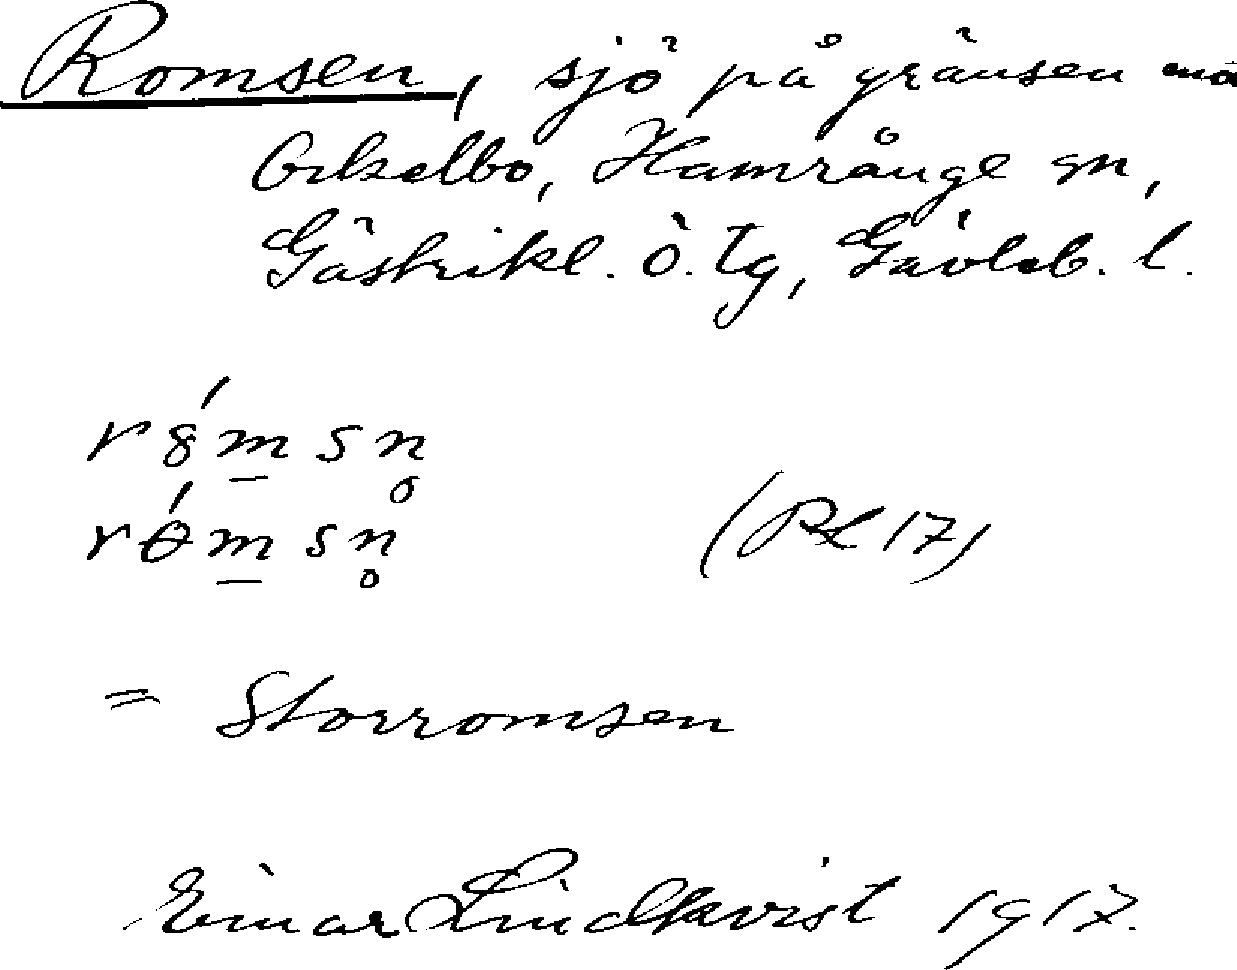 Romsen, sjö på gränsen
Ockelbo, Hamrånge sn,
Gästrikl. ö. tg, Gävleb. l.
= Storromsen
Einar Lindkvist 1917.